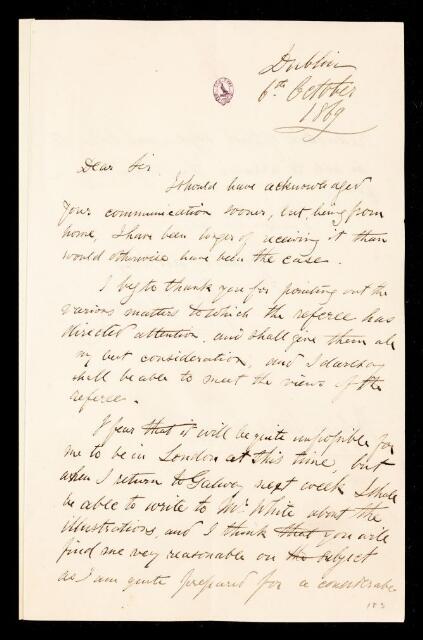 Dublin
6th October
1869
Dear Sir,
I should have acknowledged
your communication sooner, but, being from
home, I have been longer of receiving it than
would otherwise have been the case.
I beg to thank you for pointing out the
various matters to which the referee has
directed attention, and shall give them all
my best consideration, and I daresay
shall be able to meet the views of the
referee.
I fear that it will be quite impossible for
me to be in London at this time, but
when I return to Galway next week I shall
be able to write to Mr. White about the
illustrations, and I think that you will
find me very reasonable on the subject
as I am quite prepared for a considerable
183